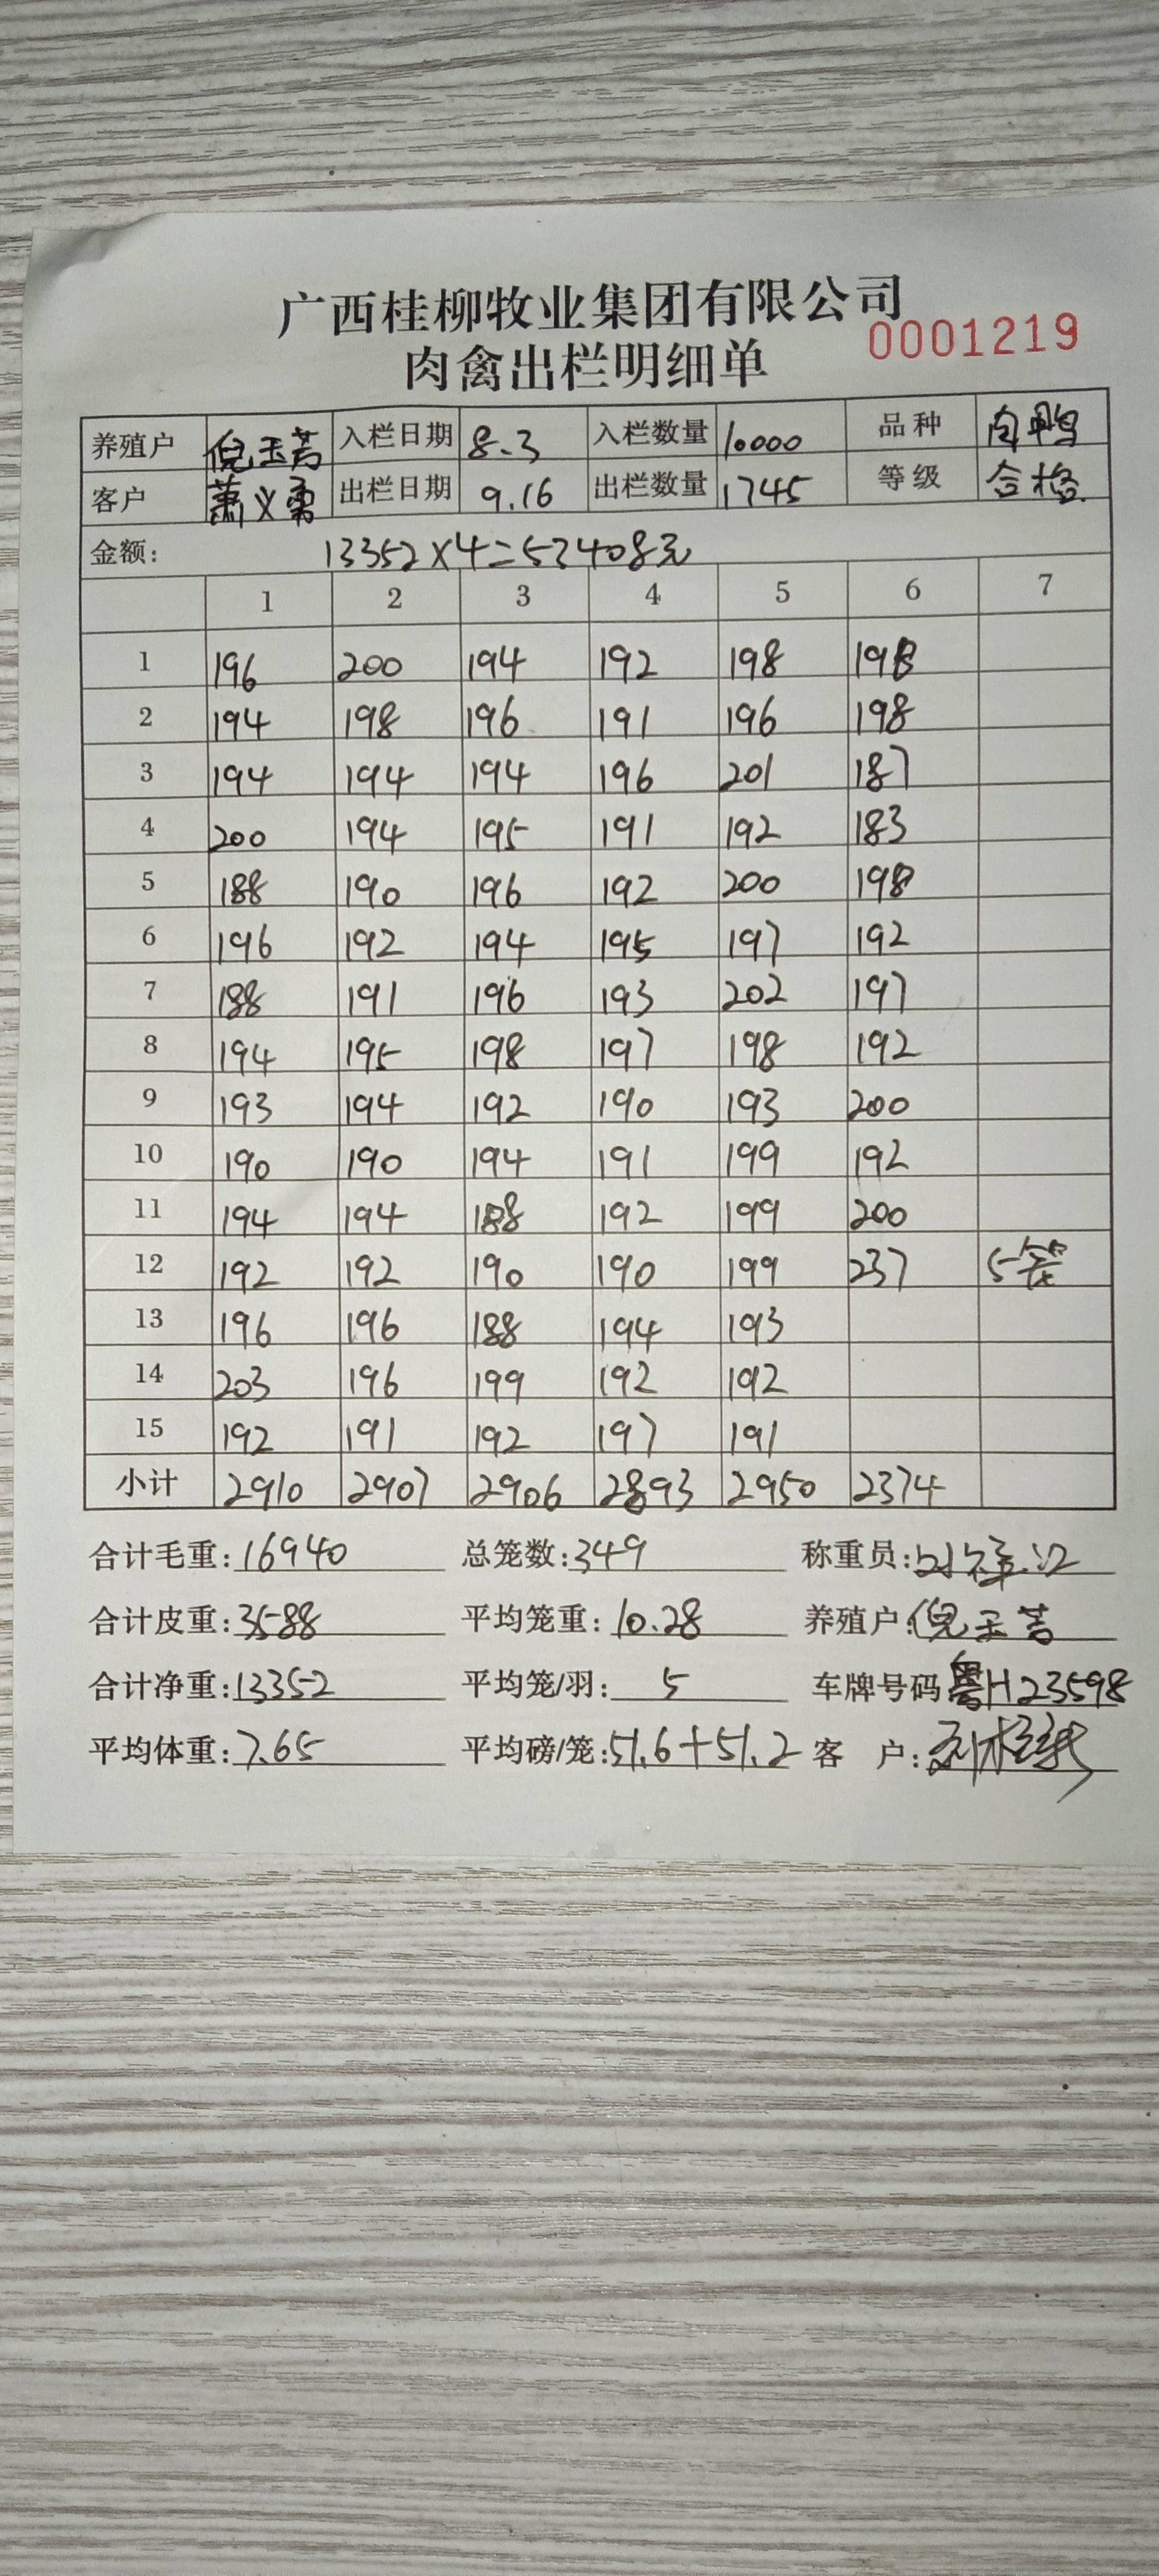 广西桂柳牧业集团有限公司
0001219
肉禽出栏明细单
养殖户 倪玉芳 入栏日期 8.3 入栏数量 10000 品种 肉鸭
客户 萧义勇 出栏日期 9.16 出栏数量 1745 等级 合格
金额: 13352×4=53408元
1 2 3 4 5 6 7
1 196 200 194 192 198 198
2 194 198 196 191 196 198
3 194 194 194 196 201 187
4 200 194 195 191 192 183
5 188 190 196 192 200 198
6 196 192 194 195 197 192
7 188 191 196 193 202 197
8 194 195 198 197 198 192
9 193 194 192 190 193 200
10 190 190 194 191 199 192
11 194 194 188 192 199 200
12 192 192 190 190 199 237 5笼
13 196 196 188 194 193
14 203 196 199 192 192
15 192 191 192 197 191
小计 2910 2907 2906 2893 2950 2374
合计毛重: 16940 总笼数: 349 称重员:
合计皮重: 3588 平均笼重: 10.28 养殖户: 倪玉芳
合计净重: 13352 平均笼/羽: 5 车牌号码 粤H23598
平均体重: 7.65 平均磅/笼: 51.6+51.2 客 户: